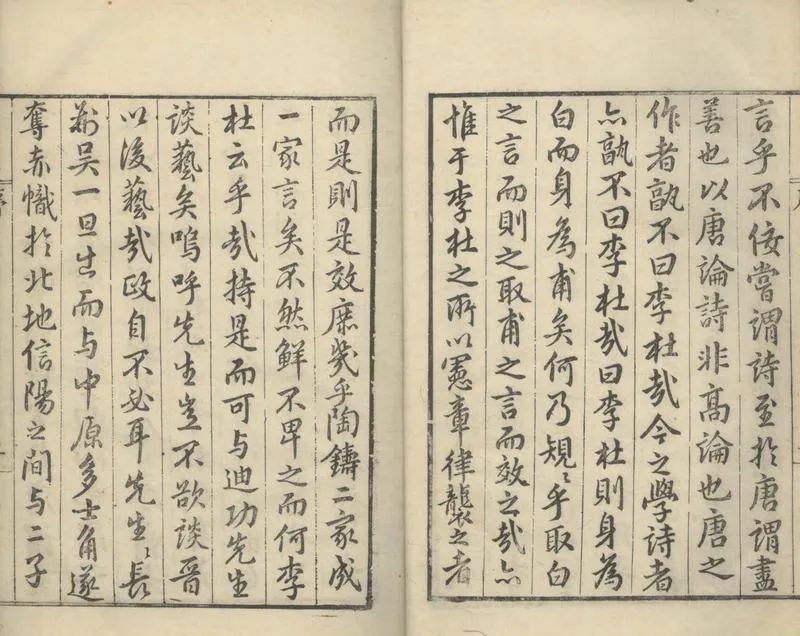 言乎不佞嘗謂詩至於唐謂盡
善也以唐論詩非高論也唐之
作者孰不曰李杜哉今之學詩者
亦孰不曰李杜哉曰李杜則身為
白而身為甫矣何乃規〻乎取白
之言而則之取甫之言而效之哉亦
惟于李杜之所以憲章律襲之者
而是則是效庶幾乎陶鑄二家成
一家言矣不然鮮不畀之而何李
杜云乎哉持是而可与迪功先生
談藝矣嗚呼先生豈不欲談晉
以後藝哉政自不必耳先生〻長
於吳一旦出而与中原多士角遂
奪赤幟於北地信陽之間与二子